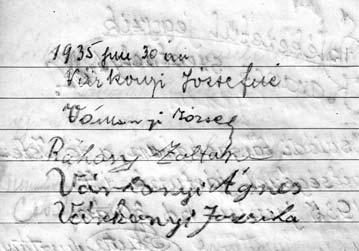 1935 jun 30 án
Várkonyi Józsefné
Vámonyi József
Ráhosy Zoltán
Várkonyi Ágnes
Várkonyi Joszika